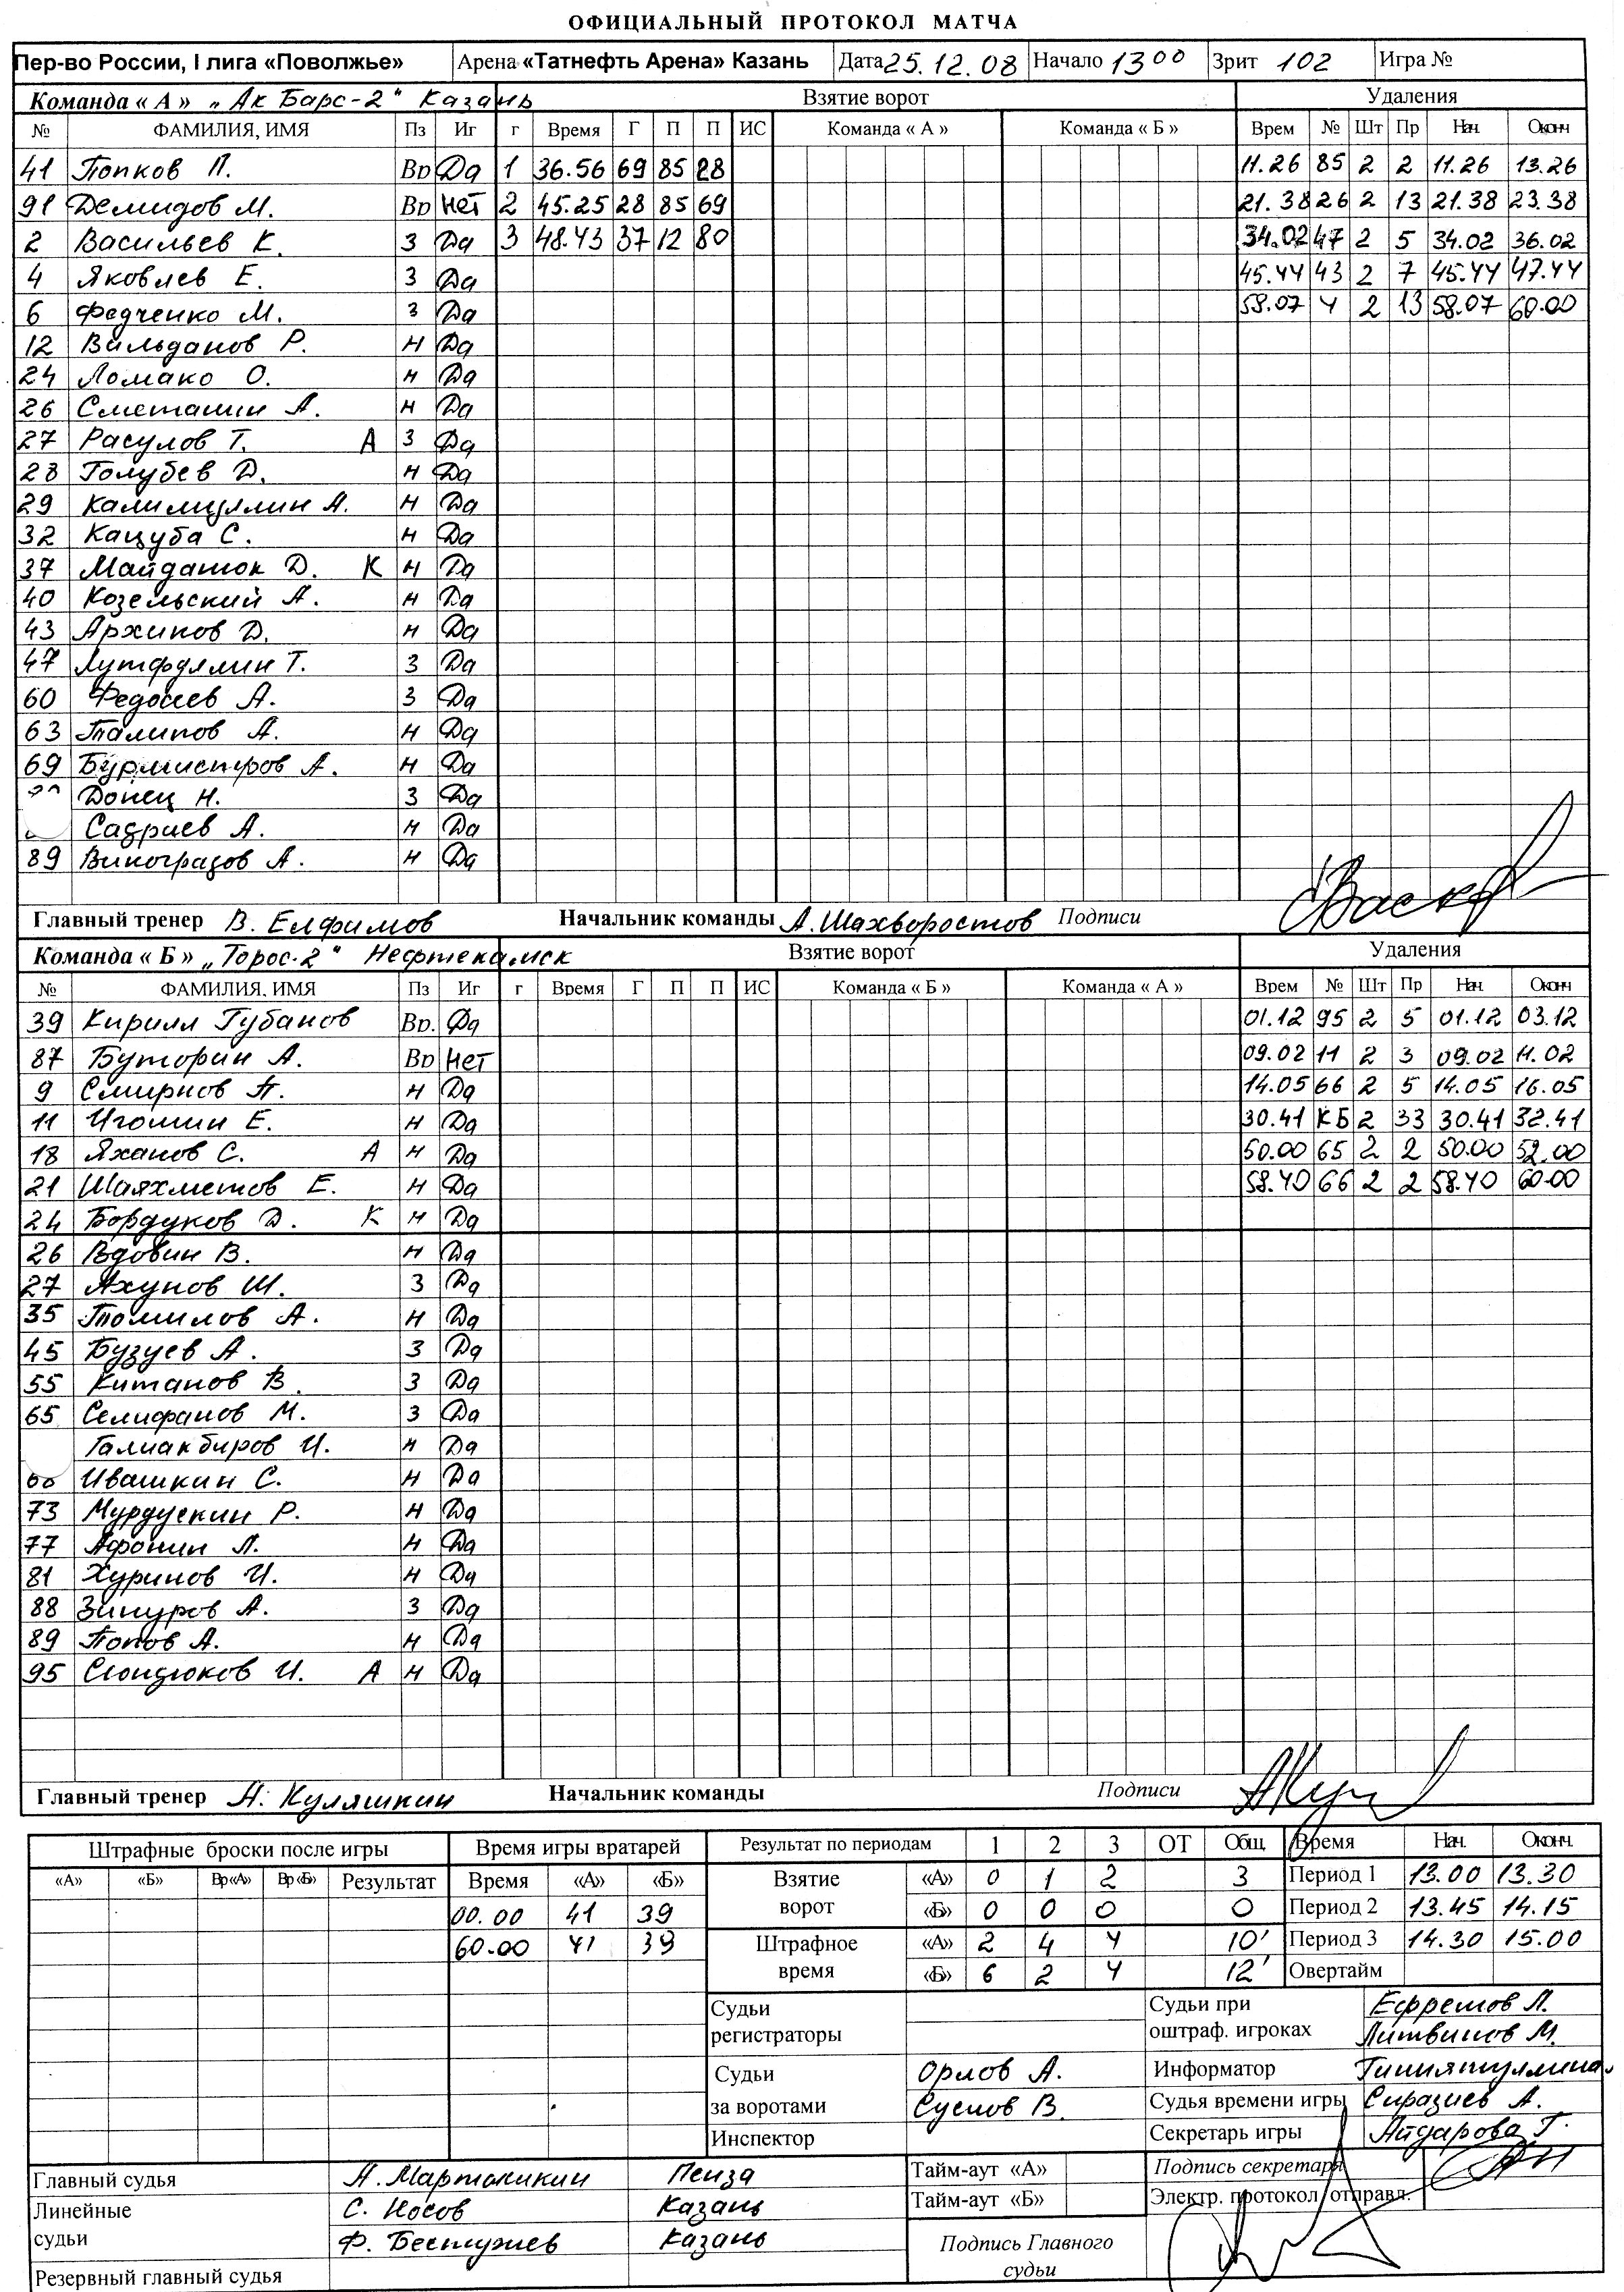 ОФИЦИАЛЬНЫЙ ПРОТОКОЛ МАТЧА
Пер-во России, I лига «Поволжье» Арена «Татнефть Арена» Казань Дата 25.12.08 Начало 13 00 Зрит 102 Игра №
Команда « А » „Ак Барс-2" Казань Взятие ворот Удаления
№ ФАМИЛИЯ, ИМЯ Пз Иг г Время Г П П ИС Команда « А » Команда « Б » Врем № Шт Пр Нач. Оконч
41 Попков П. Вр Да 1 36.56 69 85 28 11.26 85 2 2 11.26 13.26
91 Демидов М. Вр нет 2 45.25 28 85 69 21.38 26 2 13 21.38 23.38
2 Васильев К. З Да 3 48.43 37 12 80 34.02 47 2 5 34.02 36.02
4 Яковлев Е. З Да 45.44 43 2 7 45.44 47.44
6 Федченко М. З Да 58.07 4 2 13 58.07 60.00
12 Вильданов Р. Н Да
24 Ломако О. Н Да
26 Сметанин А. Н Да
27 Расулов Т. А З Да
28 Голубев Д. Н Да
29 Калимуллин А. Н Да
32 Кацуба С. Н Да
37 Майданюк Д. К Н Да
40 Козельский А. Н Да
43 Архипов Д. Н Да
47 Лутфуллин Т. З Да
60 Федосеев А. З Да
63 Талипов А. Н Да
69 Бурмистров А. Н Да
Донец Н. З Да
Садриев А. Н Да
89 Виноградов А. Н Да
Главный тренер В. Елфимов Начальник команды А. Шахворостов Подписи
Команда « Б » „Торос-2" Нефтекамск Взятие ворот Удаления
№ ФАМИЛИЯ, ИМЯ Пз Иг г Время Г П П ИС Команда « Б » Команда « А » Врем № Шт Пр Нач. Оконч
39 Кирилл Губанов Вр. Да 01.12 95 2 5 01.12 03.12
87 Буторин А. Вр Нет 09.02 11 2 3 09.02 11.02
9 Смирнов П. Н Да 14.05 66 2 5 14.05 16.05
11 Игошин Е. Н Да 30.41 КБ 2 33 30.41 32.41
18 Яханов С. А Н Да 50.00 65 2 2 50.00 52.00
21 Шаяхметов Е. Н Да 58.40 66 2 2 58.40 60.00
24 Бордуков Д. К Н Да
26 Вдовин В. Н Да
27 Ахунов Ш. З Да
35 Томилов А. Н Да
45 Бузуев А. З Да
55 Китанов В. З Да
65 Селифанов М. З Да
Галиакбиров И. Н Да
Ивашкин С. Н Да
73 Мурдускин Р. Н Да
77 Афонин Л. Н Да
81 Хуринов И. Н Да
88 Зинуров А. З Да
89 Попов А. Н Да
95 Сюндюков И. А Н Да
Главный тренер А. Куляшкин Начальник команды Подписи
Штрафные броски после игры Время игры вратарей Результат по периодам 1 2 3 ОТ Общ. Время Нач. Оконч.
«А» «Б» Вр «А» Вр «Б» Результат Время «А» «Б» Взятие ворот «А» 0 1 2 3 Период 1 13.00 13.30
00.00 41 39 «Б» 0 0 0 0 Период 2 13.45 14.15
60.00 41 39 Штрафное время «А» 2 4 4 10' Период 3 14.30 15.00
«Б» 6 2 4 12' Овертайм
Судьи регистраторы Судьи при оштраф. игроках Ефремов Л.
Литвинов М.
Судьи за воротами Орлов А. Информатор Гиниятуллина
Суслов В. Судья времени игры Сиразиев А.
Инспектор Секретарь игры Айдарова Г.
Главный судья А. Мартынкин Пенза Тайм-аут «А» Подпись секретаря
Линейные судьи С. Носов Казань Тайм-аут «Б» Электр. протокол отправл.
Ф. Бестужев Казань Подпись Главного судьи
Резервный главный судья